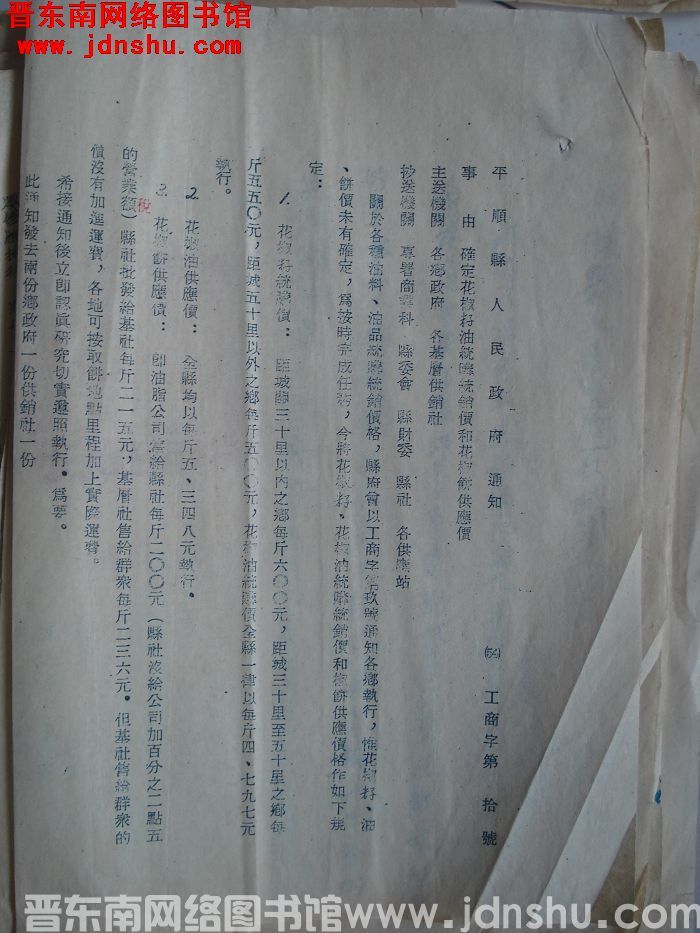 晋东南网络图书馆
www.jdnshu.com
平順縣人民政府通知
(54)工商字第拾號
事由 確定花椒籽油統購統銷價和花椒餅供應價
主送機關 各鄉政府 各基層供銷社
抄送機關 專署商業科 縣委會 縣財委 縣社 各供應站
關於各種油料、油品統購統銷價格，縣府曾以工商字第玖號通知各鄉執行，惟花椒籽、油
、餅價未有確定，為按時完成任務，今將花椒籽、花椒油統購統銷價和椒餅供應價格作如下規
定：
1. 花椒籽統購價： 距城關三十里以內之鄉每斤六〇〇元，距城三十里至五十里之鄉每
斤五五〇元，距城五十里以外之鄉每斤五〇〇元，花椒油統購價全縣一律以每斤四、七九七元
執行。
2. 花椒油供應價： 全縣均以每斤五、三四八元執行。
3. 花椒餅供應價： 即油脂公司售給縣社每斤二〇〇元（縣社沒給公司加百分之二點五
的營業額稅）縣社批發給基社每斤二一五元，基層社售給群衆每斤二三六元。但基社售給群衆的
價沒有加進運費，各地可按取餅地點里程加上實際運費。
希接通知後立即認真研究切實遵照執行。為要。
此通知發去兩份鄉政府一份供銷社一份
晋东南网络图书馆www.jdnshu.com